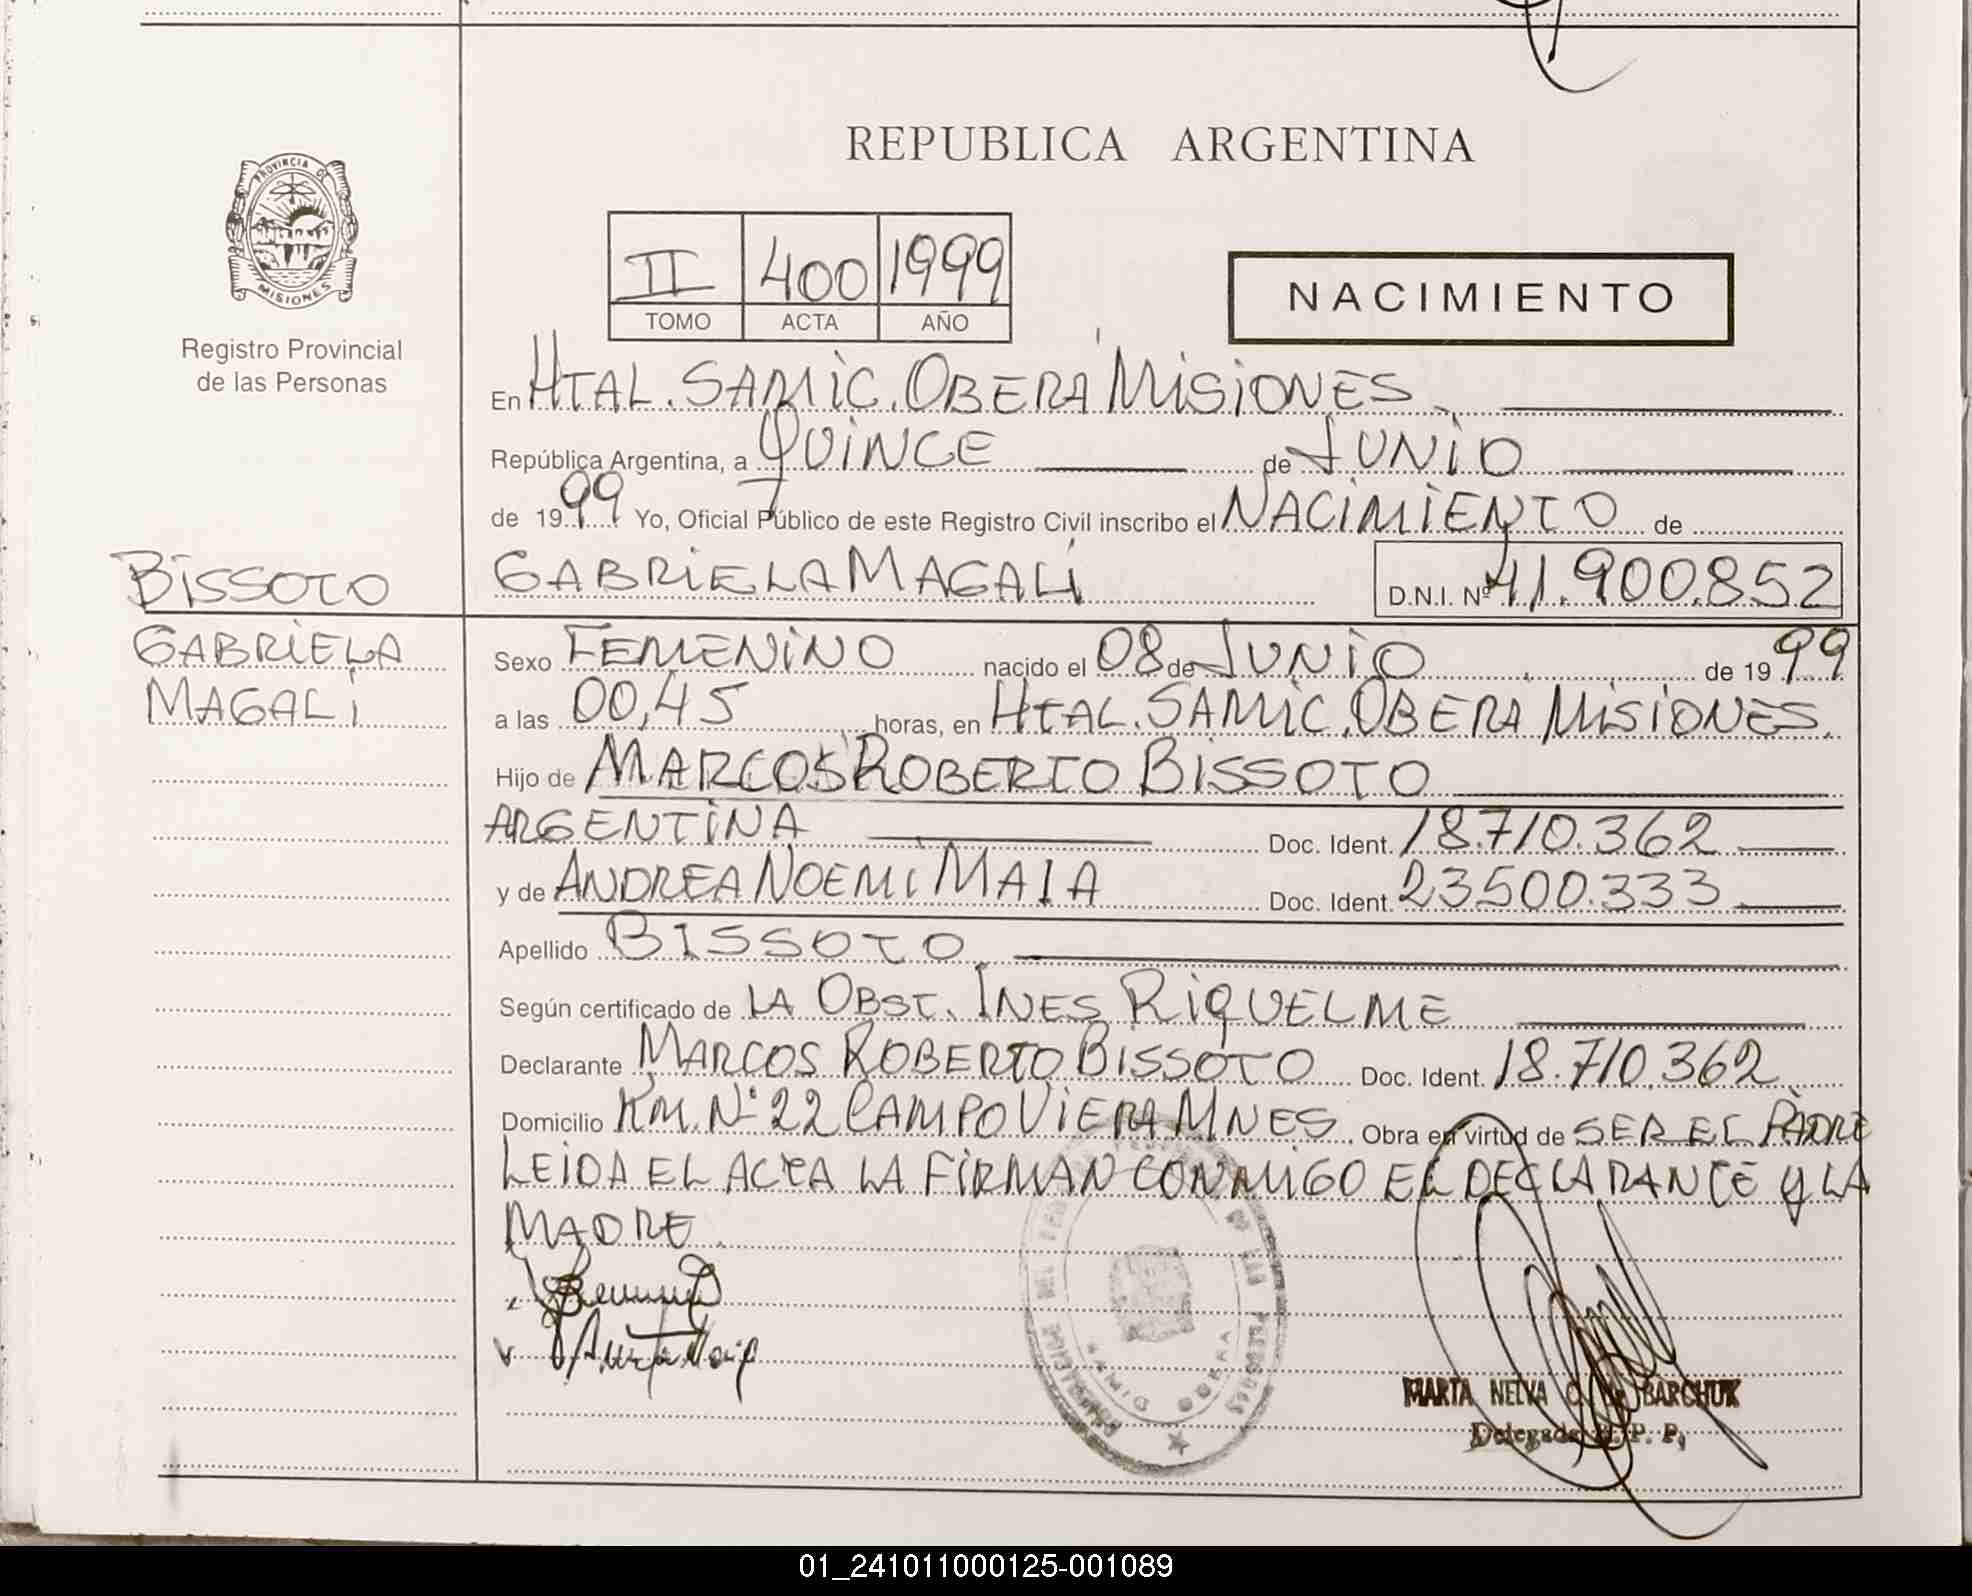 REPUBLICA ARGENTINA
PROVINCIA DE
MISIONES
Registro Provincial
de las Personas
II 400 1999
TOMO ACTA AÑO
NACIMIENTO
En HTAL. SAMIC. OBERA MISIONES
República Argentina, a QUINCE de JUNIO
de 1999 Yo, Oficial Público de este Registro Civil inscribo el NACIMIENTO de
BISSOTO
GABRIELA MAGALI
D.N.I. Nº 41.900.852
GABRIELA
MAGALI
Sexo FEMENINO nacido el 08 de JUNIO de 1999
a las 00,45 horas, en HTAL. SAMIC. OBERA MISIONES.
Hijo de MARCOS ROBERTO BISSOTO
ARGENTINA Doc. Ident. 18.710.362
y de ANDREA NOEMI MAIA Doc. Ident. 23500.333
Apellido BISSOTO
Según certificado de LA OBST. INES RIQUELME
Declarante MARCOS ROBERTO BISSOTO Doc. Ident. 18.710.362
Domicilio KM. Nº 22 CAMPO VIERA MNES. Obra en virtud de SER EL PADRE
LEIDA EL ACTA LA FIRMAN CONMIGO EL DECLARANTE Y LA
MADRE.
MARTA NELVA BARCHUK
Delegada R. P. P.
01_241011000125-001089